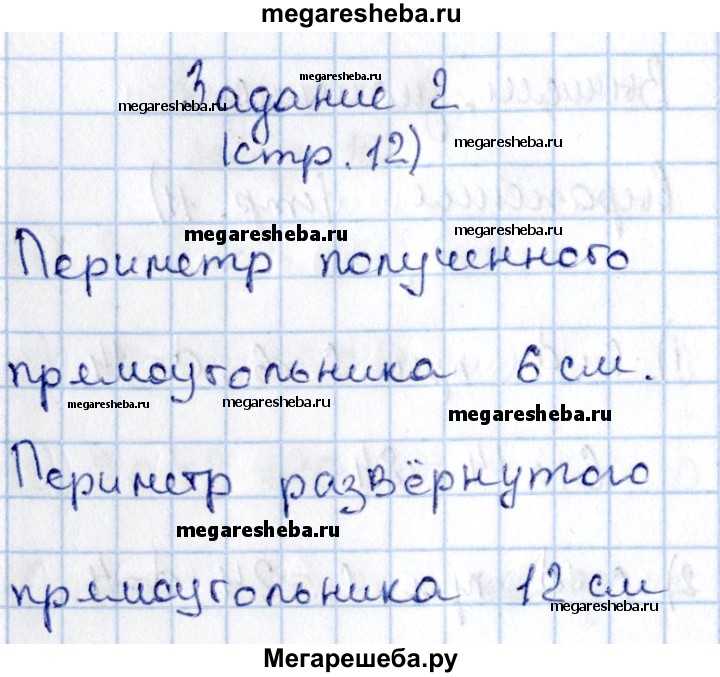 megaresheba.ru
Задание 2
megaresheba.ru
megaresheba.ru
(стр. 12)
megaresheba.ru
megaresheba.ru
megaresheba.ru
Периметр полученного
прямоугольника 6 см.
megaresheba.ru
megaresheba.ru
megaresheba.ru
Периметр развёрнутого
megaresheba.ru
прямоугольника 12 см
megaresheba.ru
Мегарешеба.ру